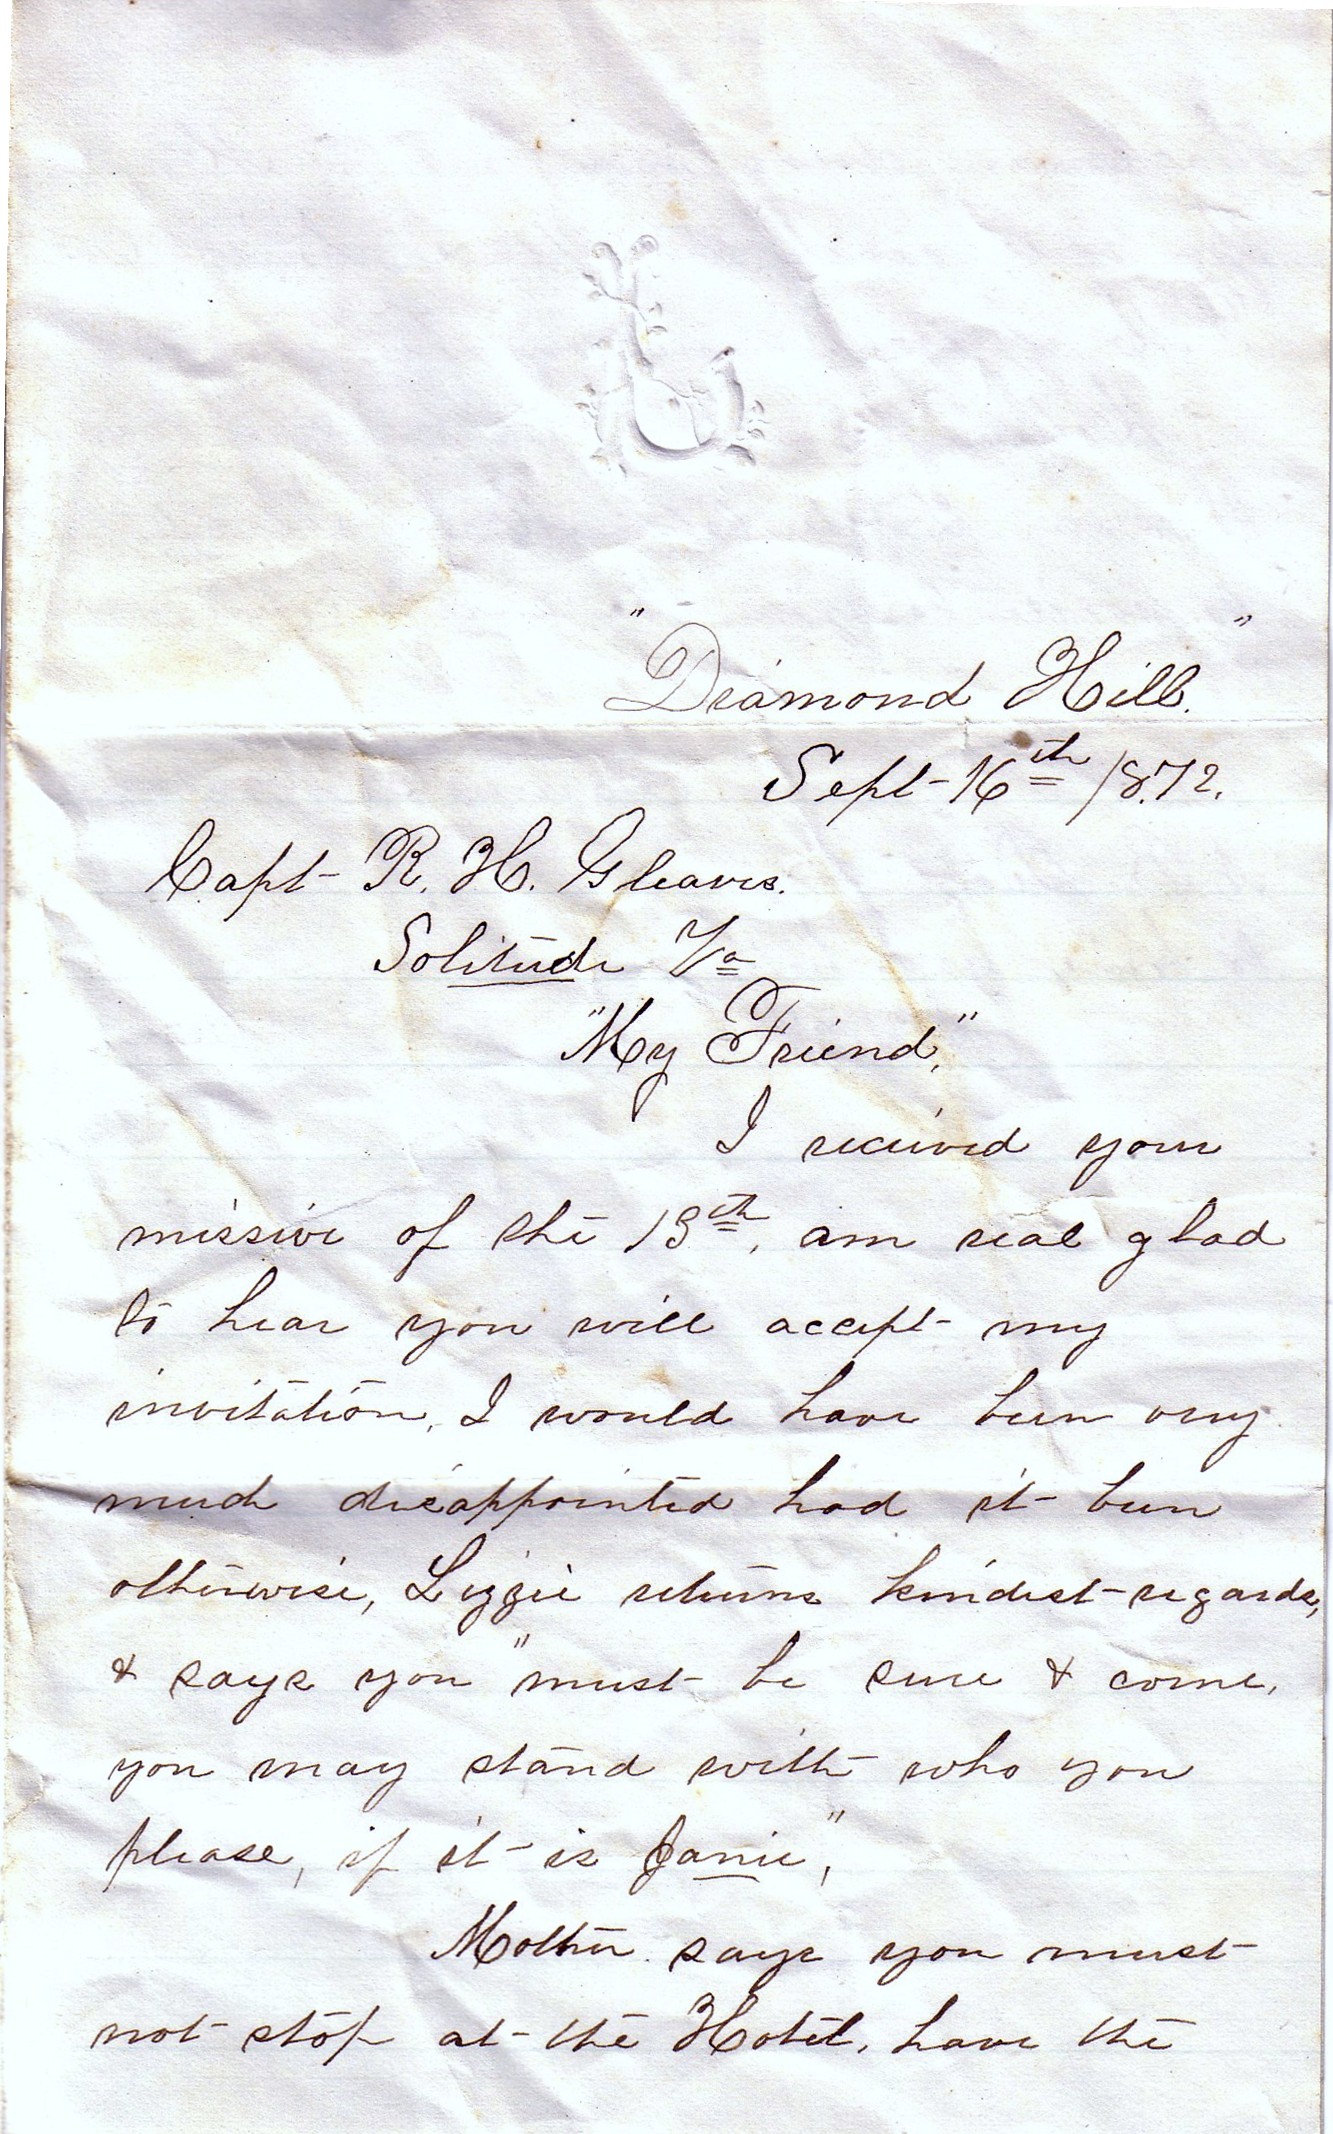 "Diamond Hill."
Sept 16th 1872.
Capt R. H. Gleaves.
Solitude Va
"My Friend,"
I received your
missive of the 13th, am real glad
to hear you will accept my
invitation, I would have been very
much disappointed had it been
otherwise, Lizzie returns kindest regards,
& says you "must be sure & come,
you may stand with who you
please, if it is Janie",
Mother says you must
not stop at the Hotel, have the